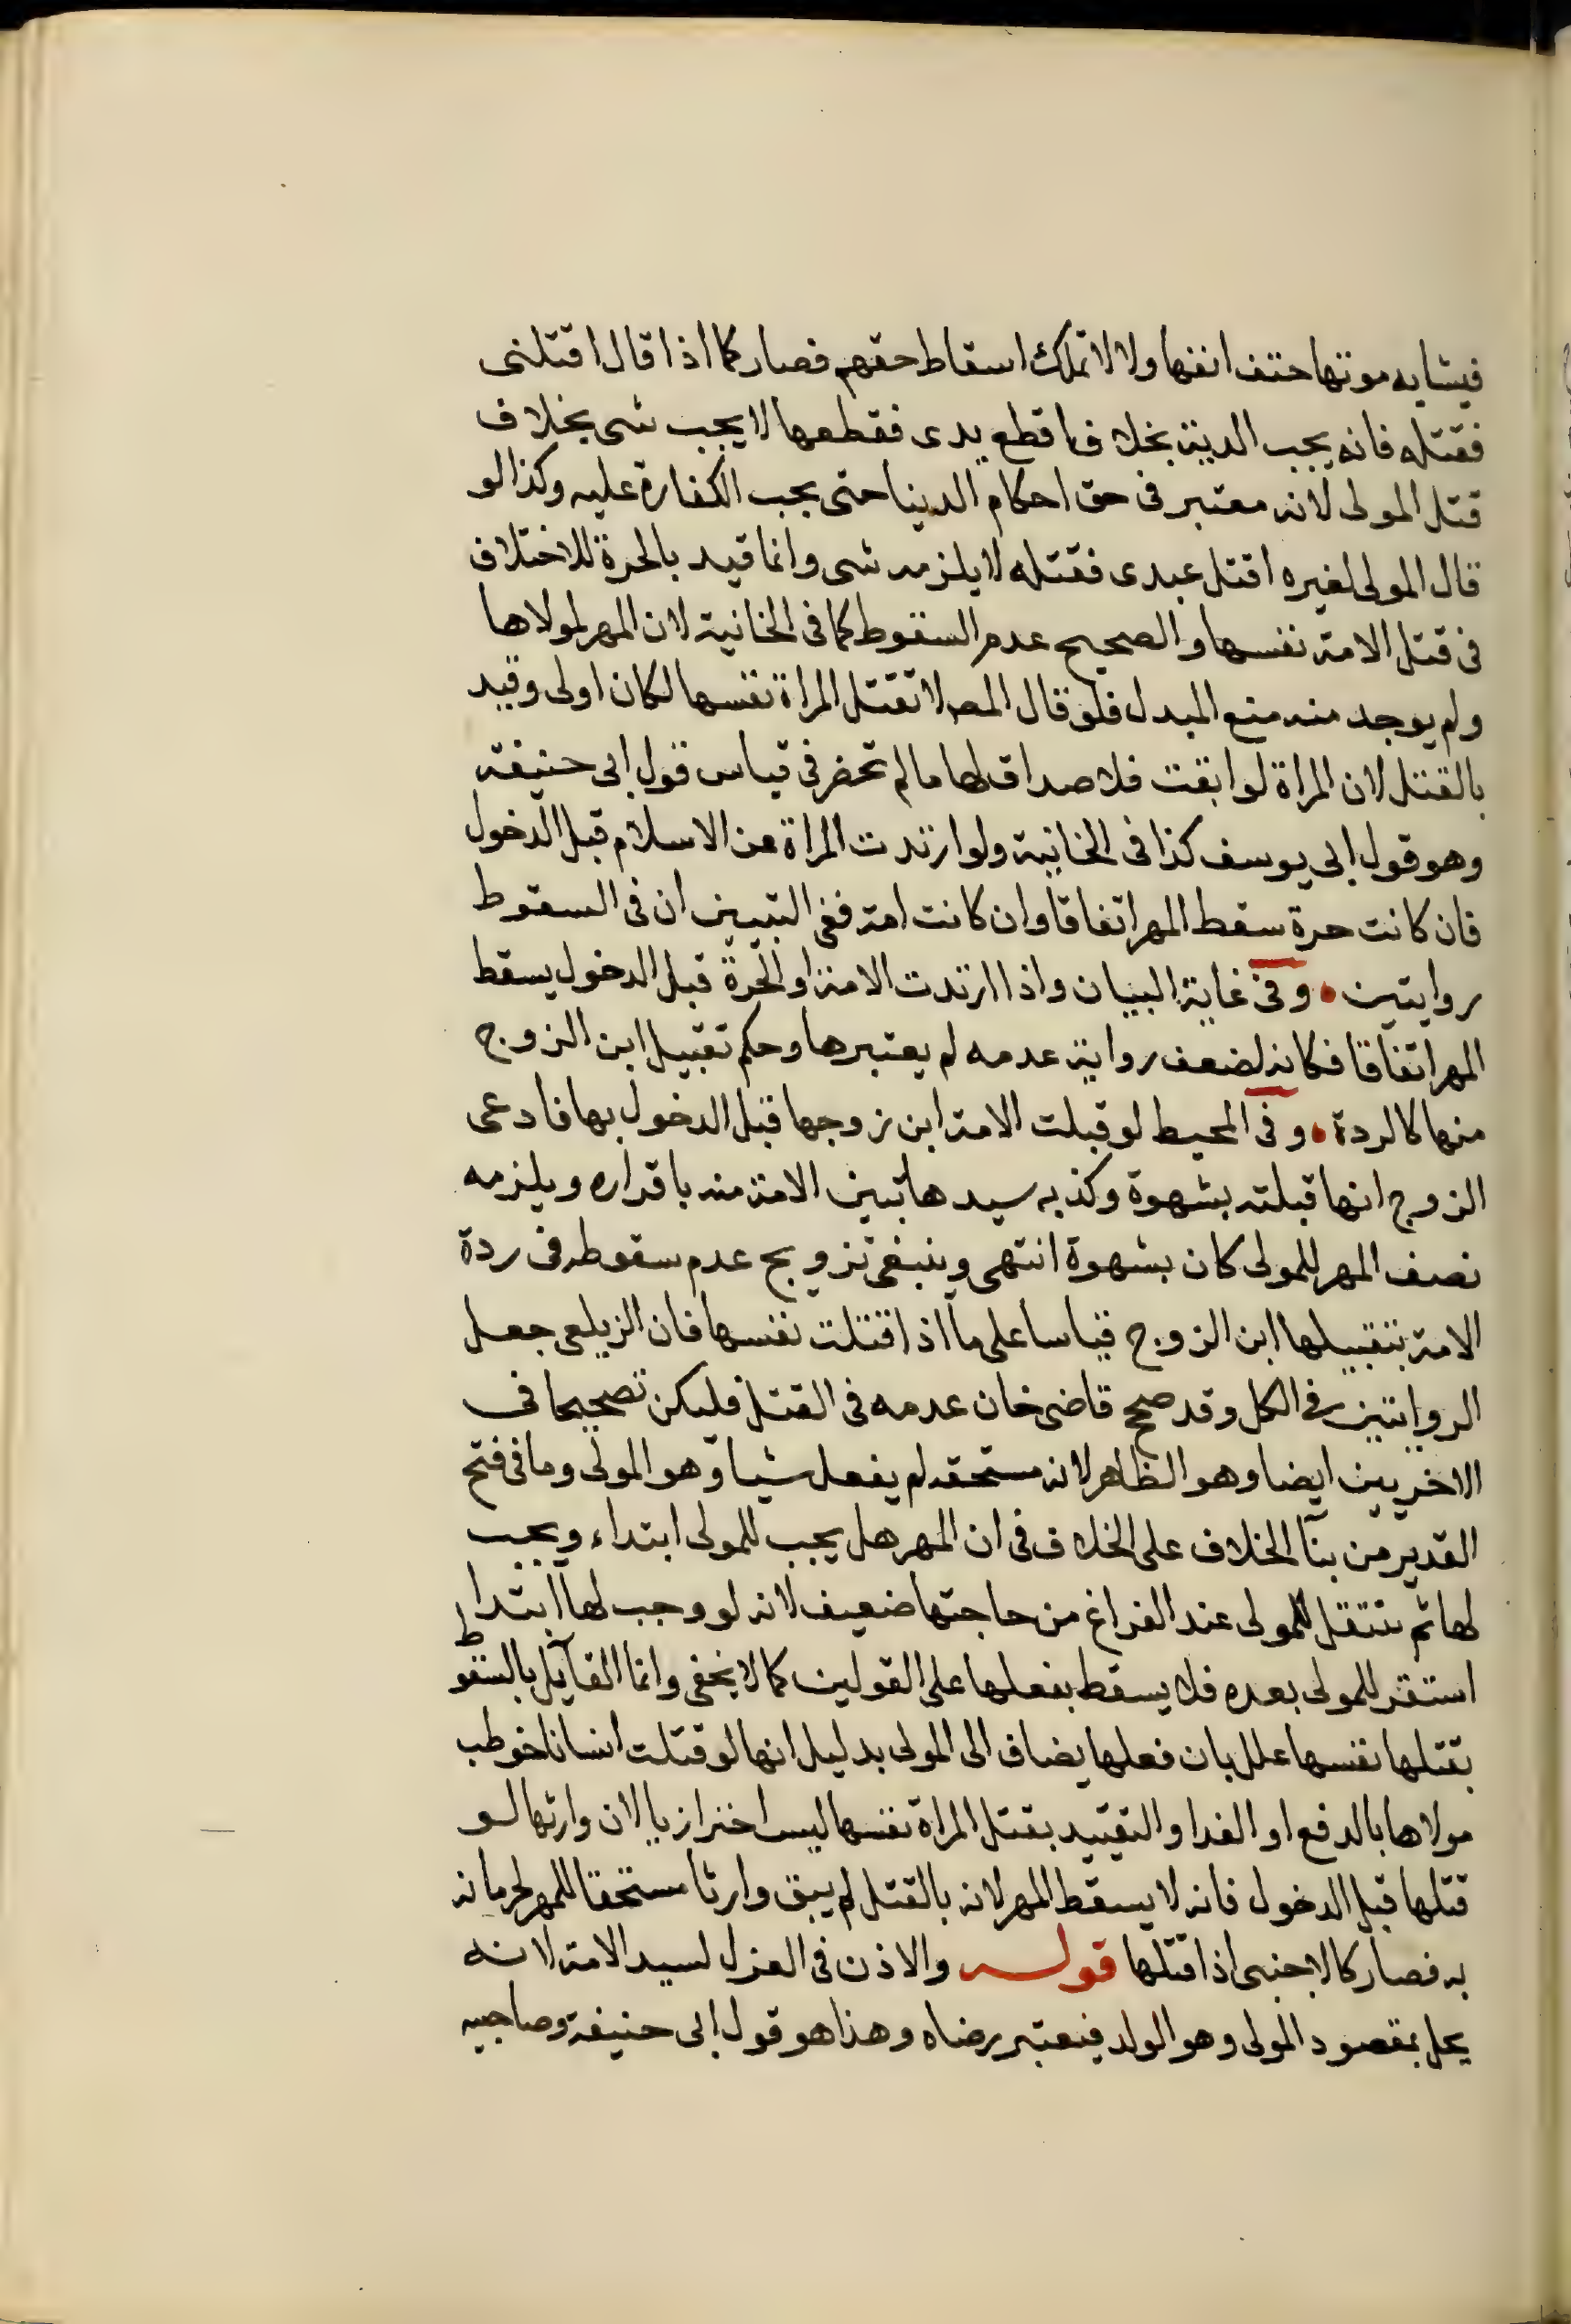 فيشابه موتها حتف انفها ولا لا تملك اسقاط حقهم فصار كما اذا قال اقتلنى
فقتله فانه يجب الدية بخلاف اقطع يدى فقطعها لا يجب شى بخلاف
قتل المولى لانه معتبر فى حق احكام الدنيا حتى يجب الكفارة عليه وكذا لو
قال المولى لغيره اقتل عبدى فقتله لا يلزمه شى وانما قيد بالحرة للاختلاف
فى قتل الامة نفسها والصحيح عدم السقوط كما فى الخانية لان المهر لمولاها
ولم يوجد منه منع المبدل فلو قال المصـ لا تقتل المراة نفسها لكان اولى وقيد
بالقتل لان المراة لو ابقت فلا صداق لها ما لم تحضر فى قياس قول ابى حنيفة
وهو قول ابى يوسف كذا فى الخانية ولو ارتدت المراة عن الاسلام قبل الدخول
فان كانت حرة سقط المهر اتفاقا وان كانت امة ففى التبيين ان فى السقوط
روايتين • وفى غاية البيان واذا ارتدت الامة او الحرة قبل الدخول يسقط
المهر اتفاقا فكانه لضعف رواية عدمه لم يعتبرها وحكم تقبيل ابن الزوج
منها كالردة • وفى المحيط لو قبلت الامة ابن زوجها قبل الدخول بها فادعى
الزوج انها قبلته بشهوة وكذبه سيدها تبين الامة منه باقراره ويلزمه
نصف المهر للمولى كان بشهوة انتهى وينبغى تزويج عدم سقوطه فى ردة
الامة بتقبيلها ابن الزوج قياسا على ما اذا قتلت نفسها فان الزيلعى جعل
الروايتين فى الكل وقد صحح قاضى خان عدمه فى القتل فليكن تصحيحا فى
الاخريين ايضا وهو الظاهر لانه مستحقه لم يفعل شيا وهو المولى وما فى فتح
القدير من بنآ الخلاف على الخلاف فى ان المهر هل يجب للمولى ابتداء ويجب
لها ثم ينتقل للمولى عند الفراغ من حاجتها ضعيف لانه لو وجب لها ابتدا
استقر للمولى بعده فلا يسقط بفعلها على القولين كما لا يخفى وانما القآيل بالسقوط
بقتلها نفسها علل بان فعلها يضاف الى المولى بدليل انها لو قتلت انسانا خوطب
مولاها بالدفع او الفدا والتقييد بقتل المراة نفسها ليس احترازيا لان وارثها لو
قتلها قبل الدخول فانه لا يسقط المهر لانه بالقتل لم يبق وارثا مستحقا للمهر لحرمانه
به فصار كالاجنبى اذا قتلها قوله والاذن فى العزل لسيد الامة لانه
يخل بمقصود المولى وهو الولد فيعتبر رضاه وهذا هو قول ابى حنيفة وصاحبيه